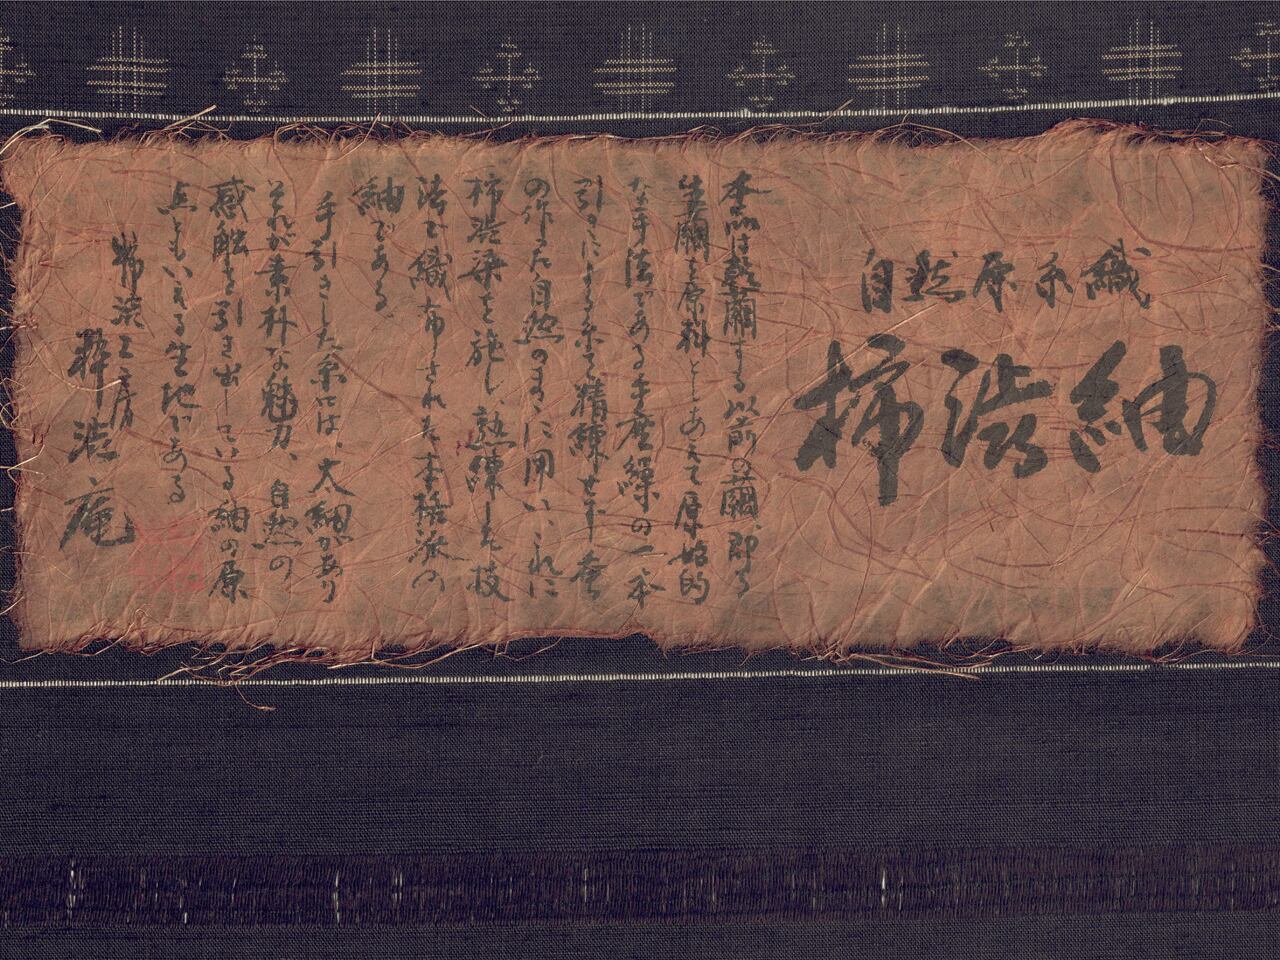 自然原糸織
柿渋紬
本品は乾繭する以前の繭、即ち
生繭を原料としあえて原始的
な手法である手座繰の一本
引きによる糸で精練せず蚕
の作った自然のまゝに用い、これに
柿渋染を施し熟練した技
法で織布された本格派の
紬である
手引きした糸には、太細があり
それが素朴な魅力、自然の
感触を引き出している紬の原
点ともいえる生地である
柿渋工房
粋渋庵